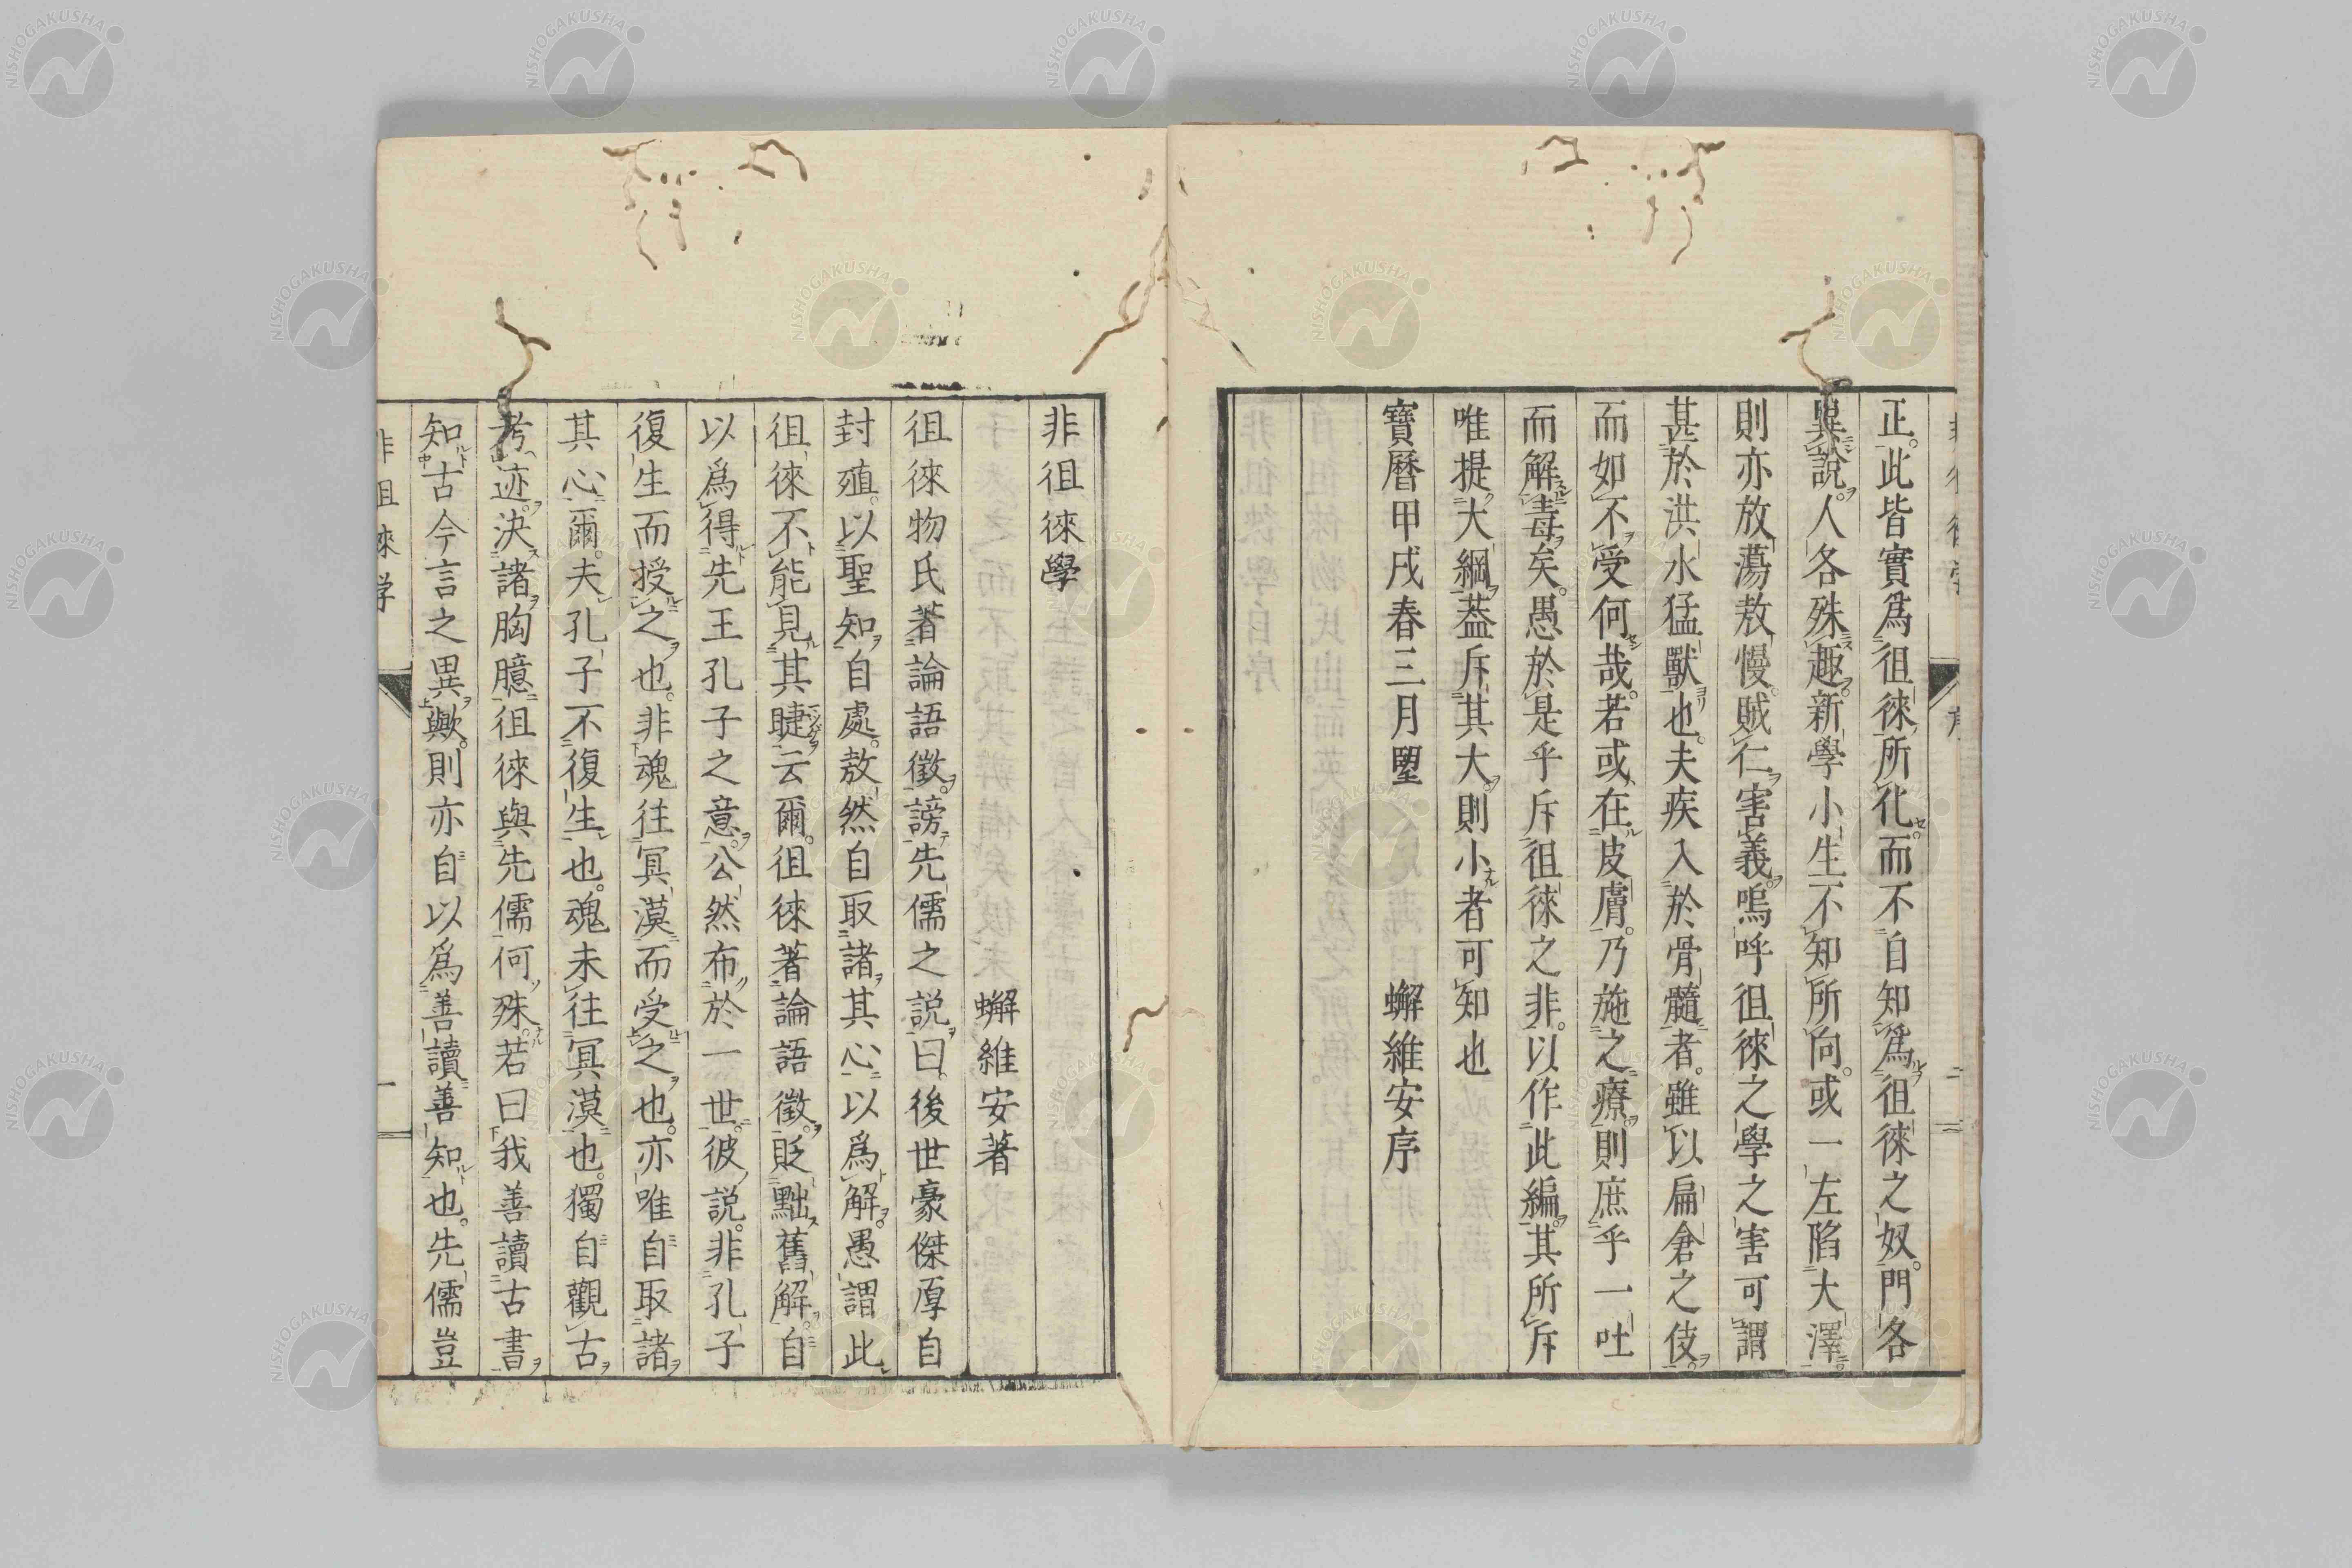 正。此皆實爲徂徠所化。而不自知爲徂徠之奴。門各
異說。人各殊趣。新學小生不知所向。或一左陷大澤。
則亦放蕩敖慢。賊仁害義。嗚呼徂徠之學之害可謂
甚於洪水猛獸也。夫疾入於骨髓者。雖以扁倉之伎。
而如不受何哉。若或在皮膚。乃施之療。則庶乎一吐
而解毒矣。愚於是乎斥徂徠之非。以作此編。其所斥
唯提大綱。葢斥其大。則小者可知也
寶曆甲戌春三月朢 蠏維安序
非徂徠學
蠏維安著
徂徠物氏著論語徵。謗先儒之説。曰。後世豪傑厚自
封殖。以聖知自處。敖然自取諸其心。以爲解。愚謂此
徂徠不能見其睫云爾。徂徠著論語徵。貶黜舊解。自
以爲得先王孔子之意。公然布於一世。彼説。非孔子
復生而授之也。非魂往冥漠而受之也。亦唯自取諸
其心爾。夫孔子不復生也。魂未往冥漠也。獨自觀古
考迹。決諸胸臆。徂徠與先儒何殊。若曰我善讀古書。
知古今言之異歟。則亦自以爲善讀善知也。先儒豈
非徂徠学
一